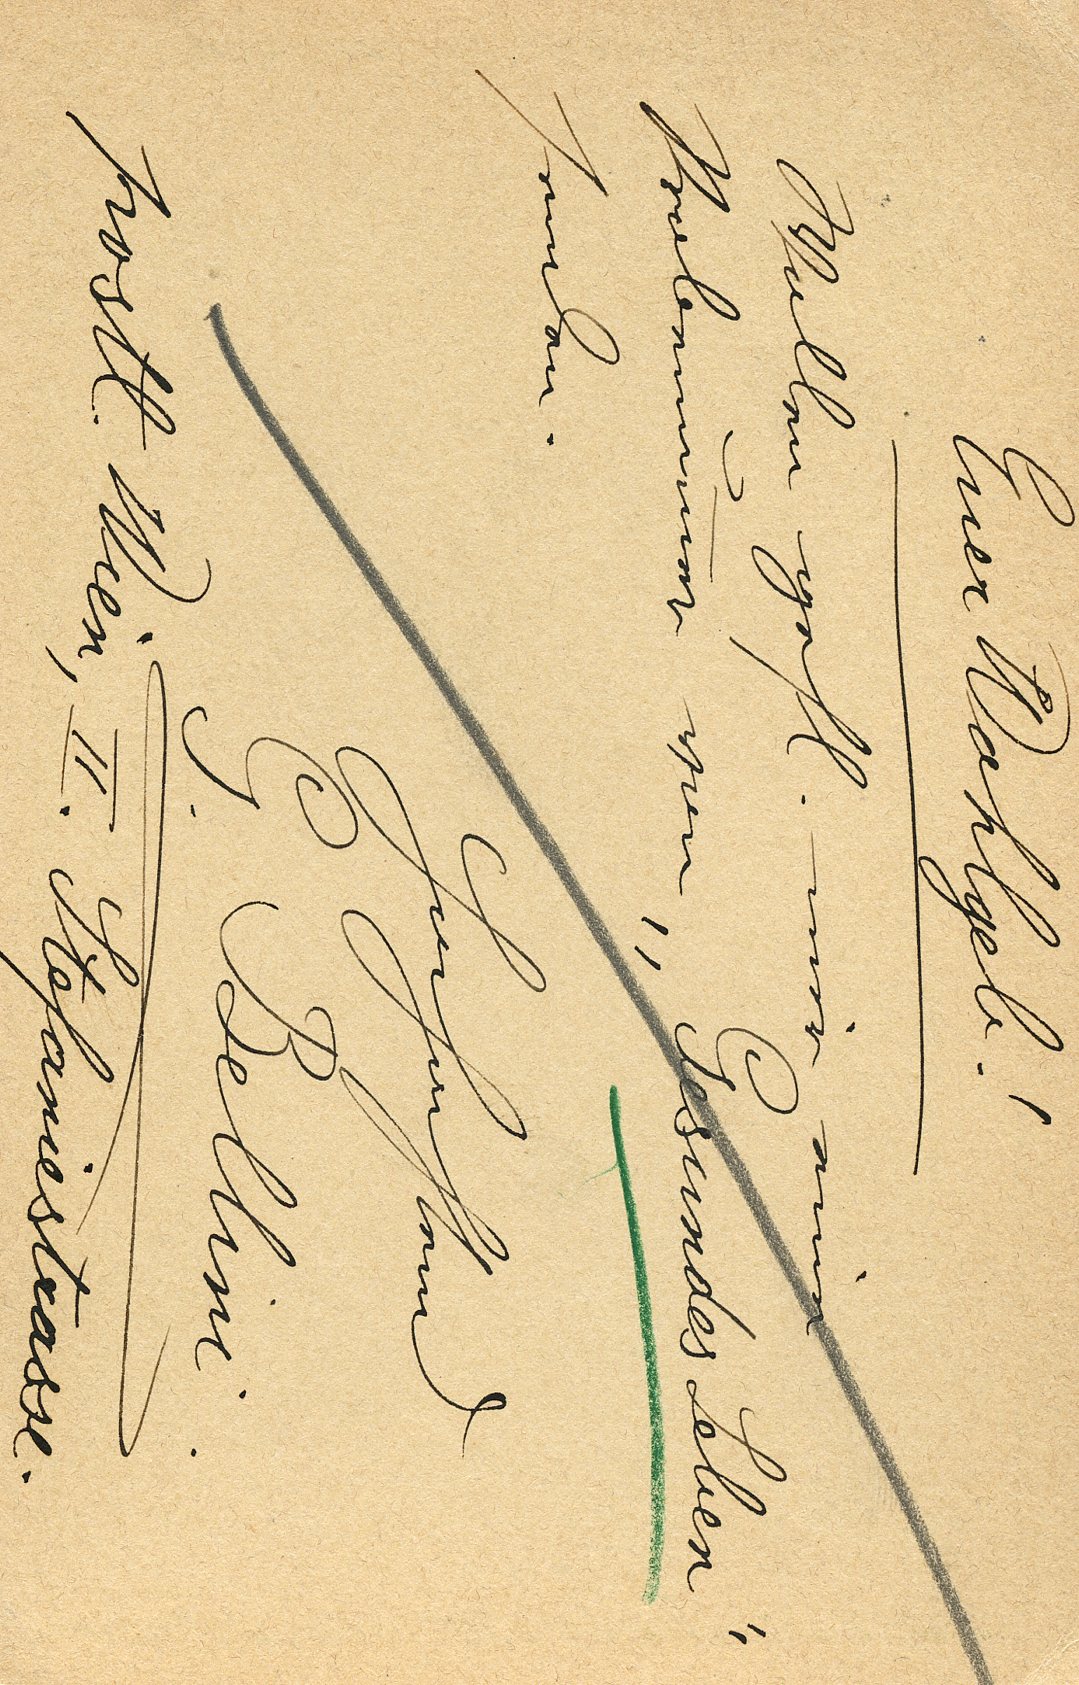 Euer Wohlgeb.!
Wollen gefl. mir eine
Probenummer von „Gesundes Leben"
senden.
Hochachtend
G. Bellini.
postl. Wien, II. Stefaniestrasse.